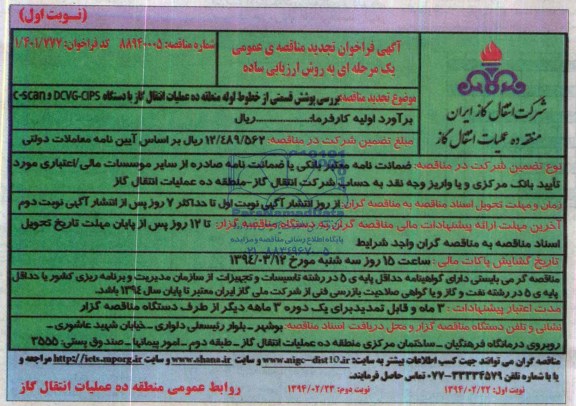 (نوبت اول)
آگهی فراخوان تجدید مناقصه ی عمومی
یک مرحله ای به روش ارزیابی ساده
شماره مناقصه: 8894005 کد فراخوان: 1/401/777
شرکت انتقال گاز ایران
منطقه ده عملیات انتقال گاز
موضوع تجدید مناقصه: بررسی پوشش قسمتی از خطوط لوله منطقه ده عملیات انتقال گاز با دستگاه DCVG-CIPS و c-scan
برآورد اولیه کارفرما:..............ریال
مبلغ تضمین شرکت در مناقصه: 12/489/562 ریال بر اساس آیین نامه معاملات دولتی
نوع تضمین شرکت در مناقصه: ضمانت نامه معتبر بانکی یا ضمانت نامه صادره از سایر موسسات مالی/اعتباری مورد
تأیید بانک مرکزی و یا واریز وجه نقد به حساب شرکت انتقال گاز-منطقه ده عملیات انتقال گاز
زمان و مهلت تحویل اسناد مناقصه به مناقصه گران: از روز انتشار آگهی نوبت اول تا حداکثر 7 روز پس از انتشار آگهی نوبت دوم
آخرین مهلت ارائه پیشنهادات مالی مناقصه گران به دستگاه مناقصه گزار: تا 12 روز پس از پایان مهلت تاریخ تحویل
اسناد مناقصه به مناقصه گران واجد شرایط
پایگاه اطلاع رسانی مناقصه و مزایده
تاریخ گشایش پاکات مالی: ساعت 15 روز سه شنبه مورخ 1394/03/12
مناقصه گر می بایستی دارای گواهینامه حداقل پایه ی 5 در رشته تاسیسات و تجهیزات از سازمان مدیریت و برنامه ریزی کشور یا حداقل
پایه ی 5 در رشته نفت و گاز و یا گواهی صلاحیت بازرسی فنی از شرکت ملی گاز ایران معتبر تا پایان سال 1394 باشد.
مدت اعتبار پیشنهادات: 3 ماه و قابل تمدید برای یک دوره 3 ماهه دیگر از طرف دستگاه مناقصه گزار
نشانی و تلفن دستگاه مناقصه گزار و محل دریافت اسناد مناقصه: بوشهر ـ بلوار رئیسعلی دلواری ـ خیابان شهید عاشوری ـ
روبروی درمانگاه فرهنگیان ـ ساختمان مرکزی منطقه ده عملیات انتقال گاز ـ طبقه دوم ـ امور پیمانها ـ صندوق پستی: 3555
مناقصه گران می توانند جهت کسب اطلاعات بیشتر به سایت: www.nigc-dist10.ir و سایت www.shana.ir و سایت http://iets.mporg.ir مراجعه و
یا با شماره تلفن 33334579-077 تماس حاصل فرمایند.
نوبت اول: 1394/02/22 نوبت دوم: 1394/02/23 روابط عمومی منطقه ده عملیات انتقال گاز